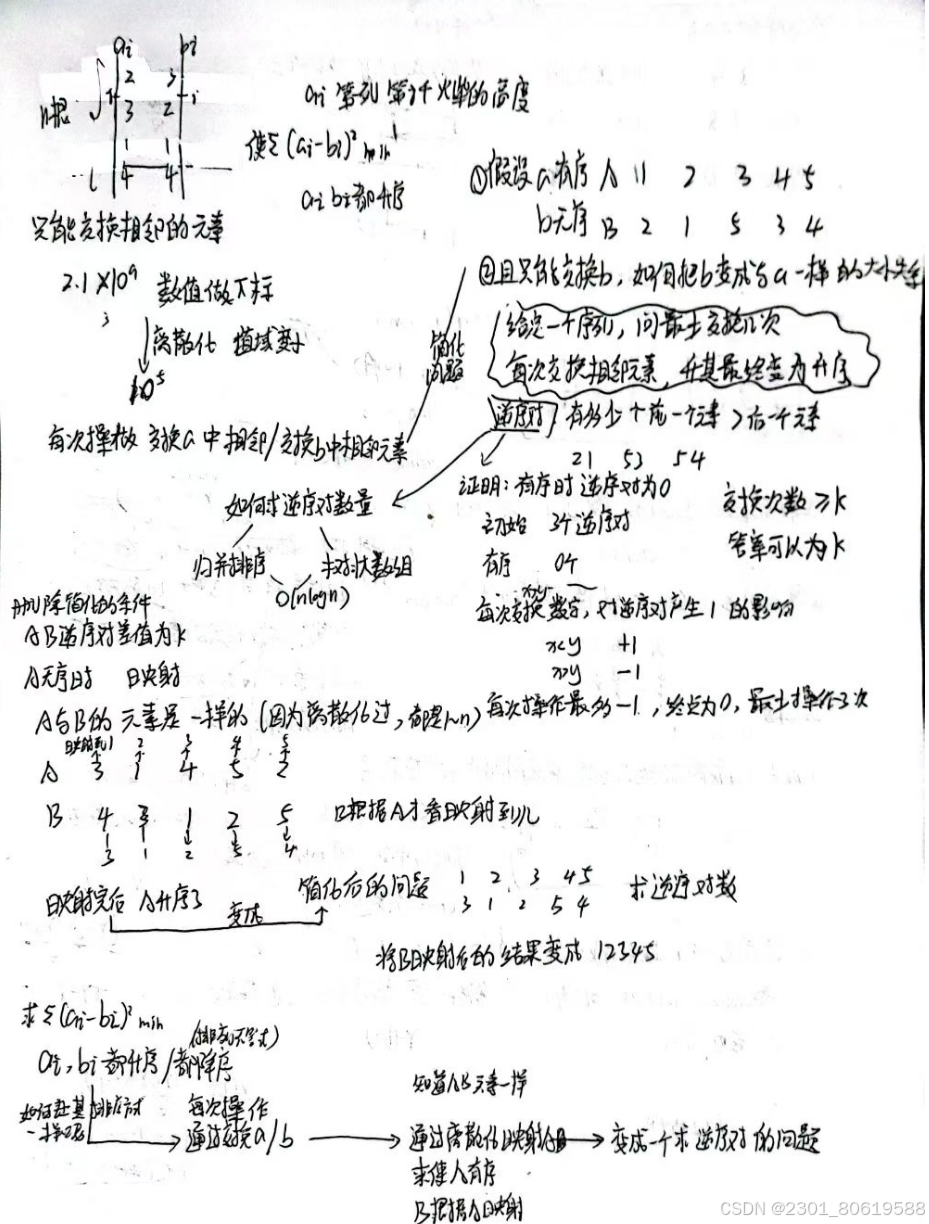 ai bi
2 3
n根 3 2 i
1 1
4 4
ai 第i列 第i个火柴的高度
使Σ(ai-bi)² min
ai bi 都升序
只能交换相邻的元素
①假设a有序 A 1 2 3 4 5
b无序 B 2 1 5 3 4
②且只能交换b，如何把b变成与a一样的大小关系
2.1×10⁹ 数值做下标
离散化 值域变小
10⁵
简化
问题
给定一个序列，问最少交换几次
每次交换相邻元素，升其最终变为升序
每次操做 交换a中相邻/交换b中相邻元素
逆序对：有多少个前一个元素>后一个元素
21 53 54
证明：有序时 逆序对为0
初始 3个逆序对
有序 0个
交换次数≥k
答案可以为k
如何求逆序对数量
归并排序 树状数组
O(nlogn)
每次交换xy数字，对逆序对产生1的影响
x<y +1
x>y -1
每次操作最多-1，终点为0，最少操作3次
删除简化的条件
AB逆序对差值为k
A无序时 映射
A与B的元素是一样的（因为离散化过，都是1~n）
映射到1 2 3 4 5
A 3 1 4 5 2
B 4 3 1 2 5 B根据A才看映射到几
3 1 2 5 4
映射完后 A升序了 变成 简化后的问题 1 2 3 4 5 求逆序对数
3 1 2 5 4
将B映射后的结果变成 12345
求Σ(ai-bi)² min
(排序不等式)
ai，bi都升序/都降序
每次操作
通过交换a/b
知道AB元素一样
通过离散化映射AB
来使A有序
B根据A映射
变成一个求逆序对的问题
CSDN @2301_80619588